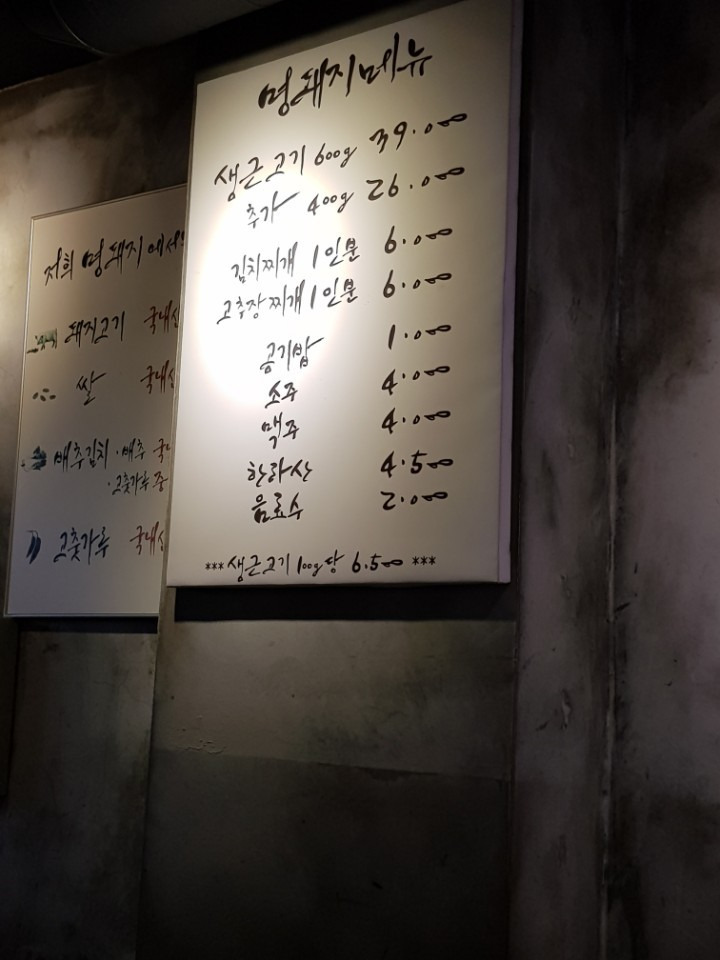 명돼지메뉴
생근고기 600g 39.000
추가 400g 26.000
김치찌개 1인분 6.000
고추장찌개 1인분 6.000
공기밥 1.000
소주 4.000
맥주 4.000
한라산 4.500
음료수 2.000
***생근고기 100g당 6.500***
저희 명돼지에서
돼지고기 국내산
쌀 국내산
배추김치·배추 국내
·고춧가루 중
고춧가루 국내산